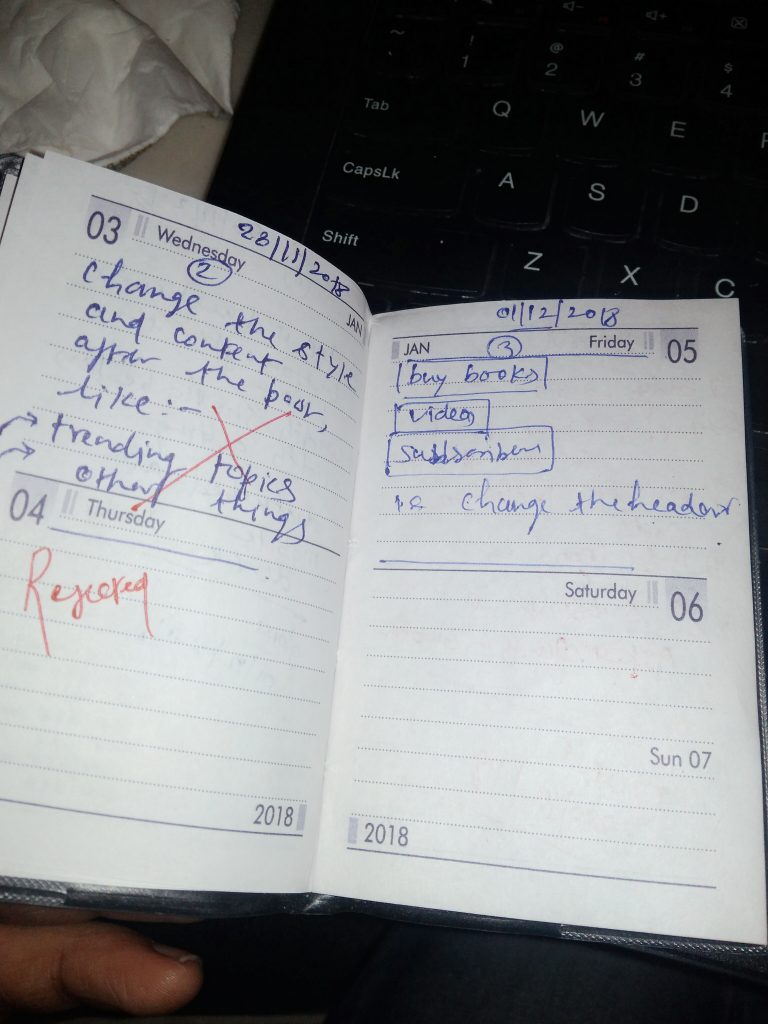 ~
`
!
1
@
2
#
3
$
4
Tab
Q
W
E
CapsLk
A
S
D
Shift
Z
X
C
03 Wednesday 28/11/2018
2
JAN
change the style
and content
after the
like:-
→ trending topics
→ other things
04 Thursday
Rejected
2018
01/12/2018
JAN 3 Friday 05
buy books
video
subscribers
change the header
Saturday 06
Sun 07
2018